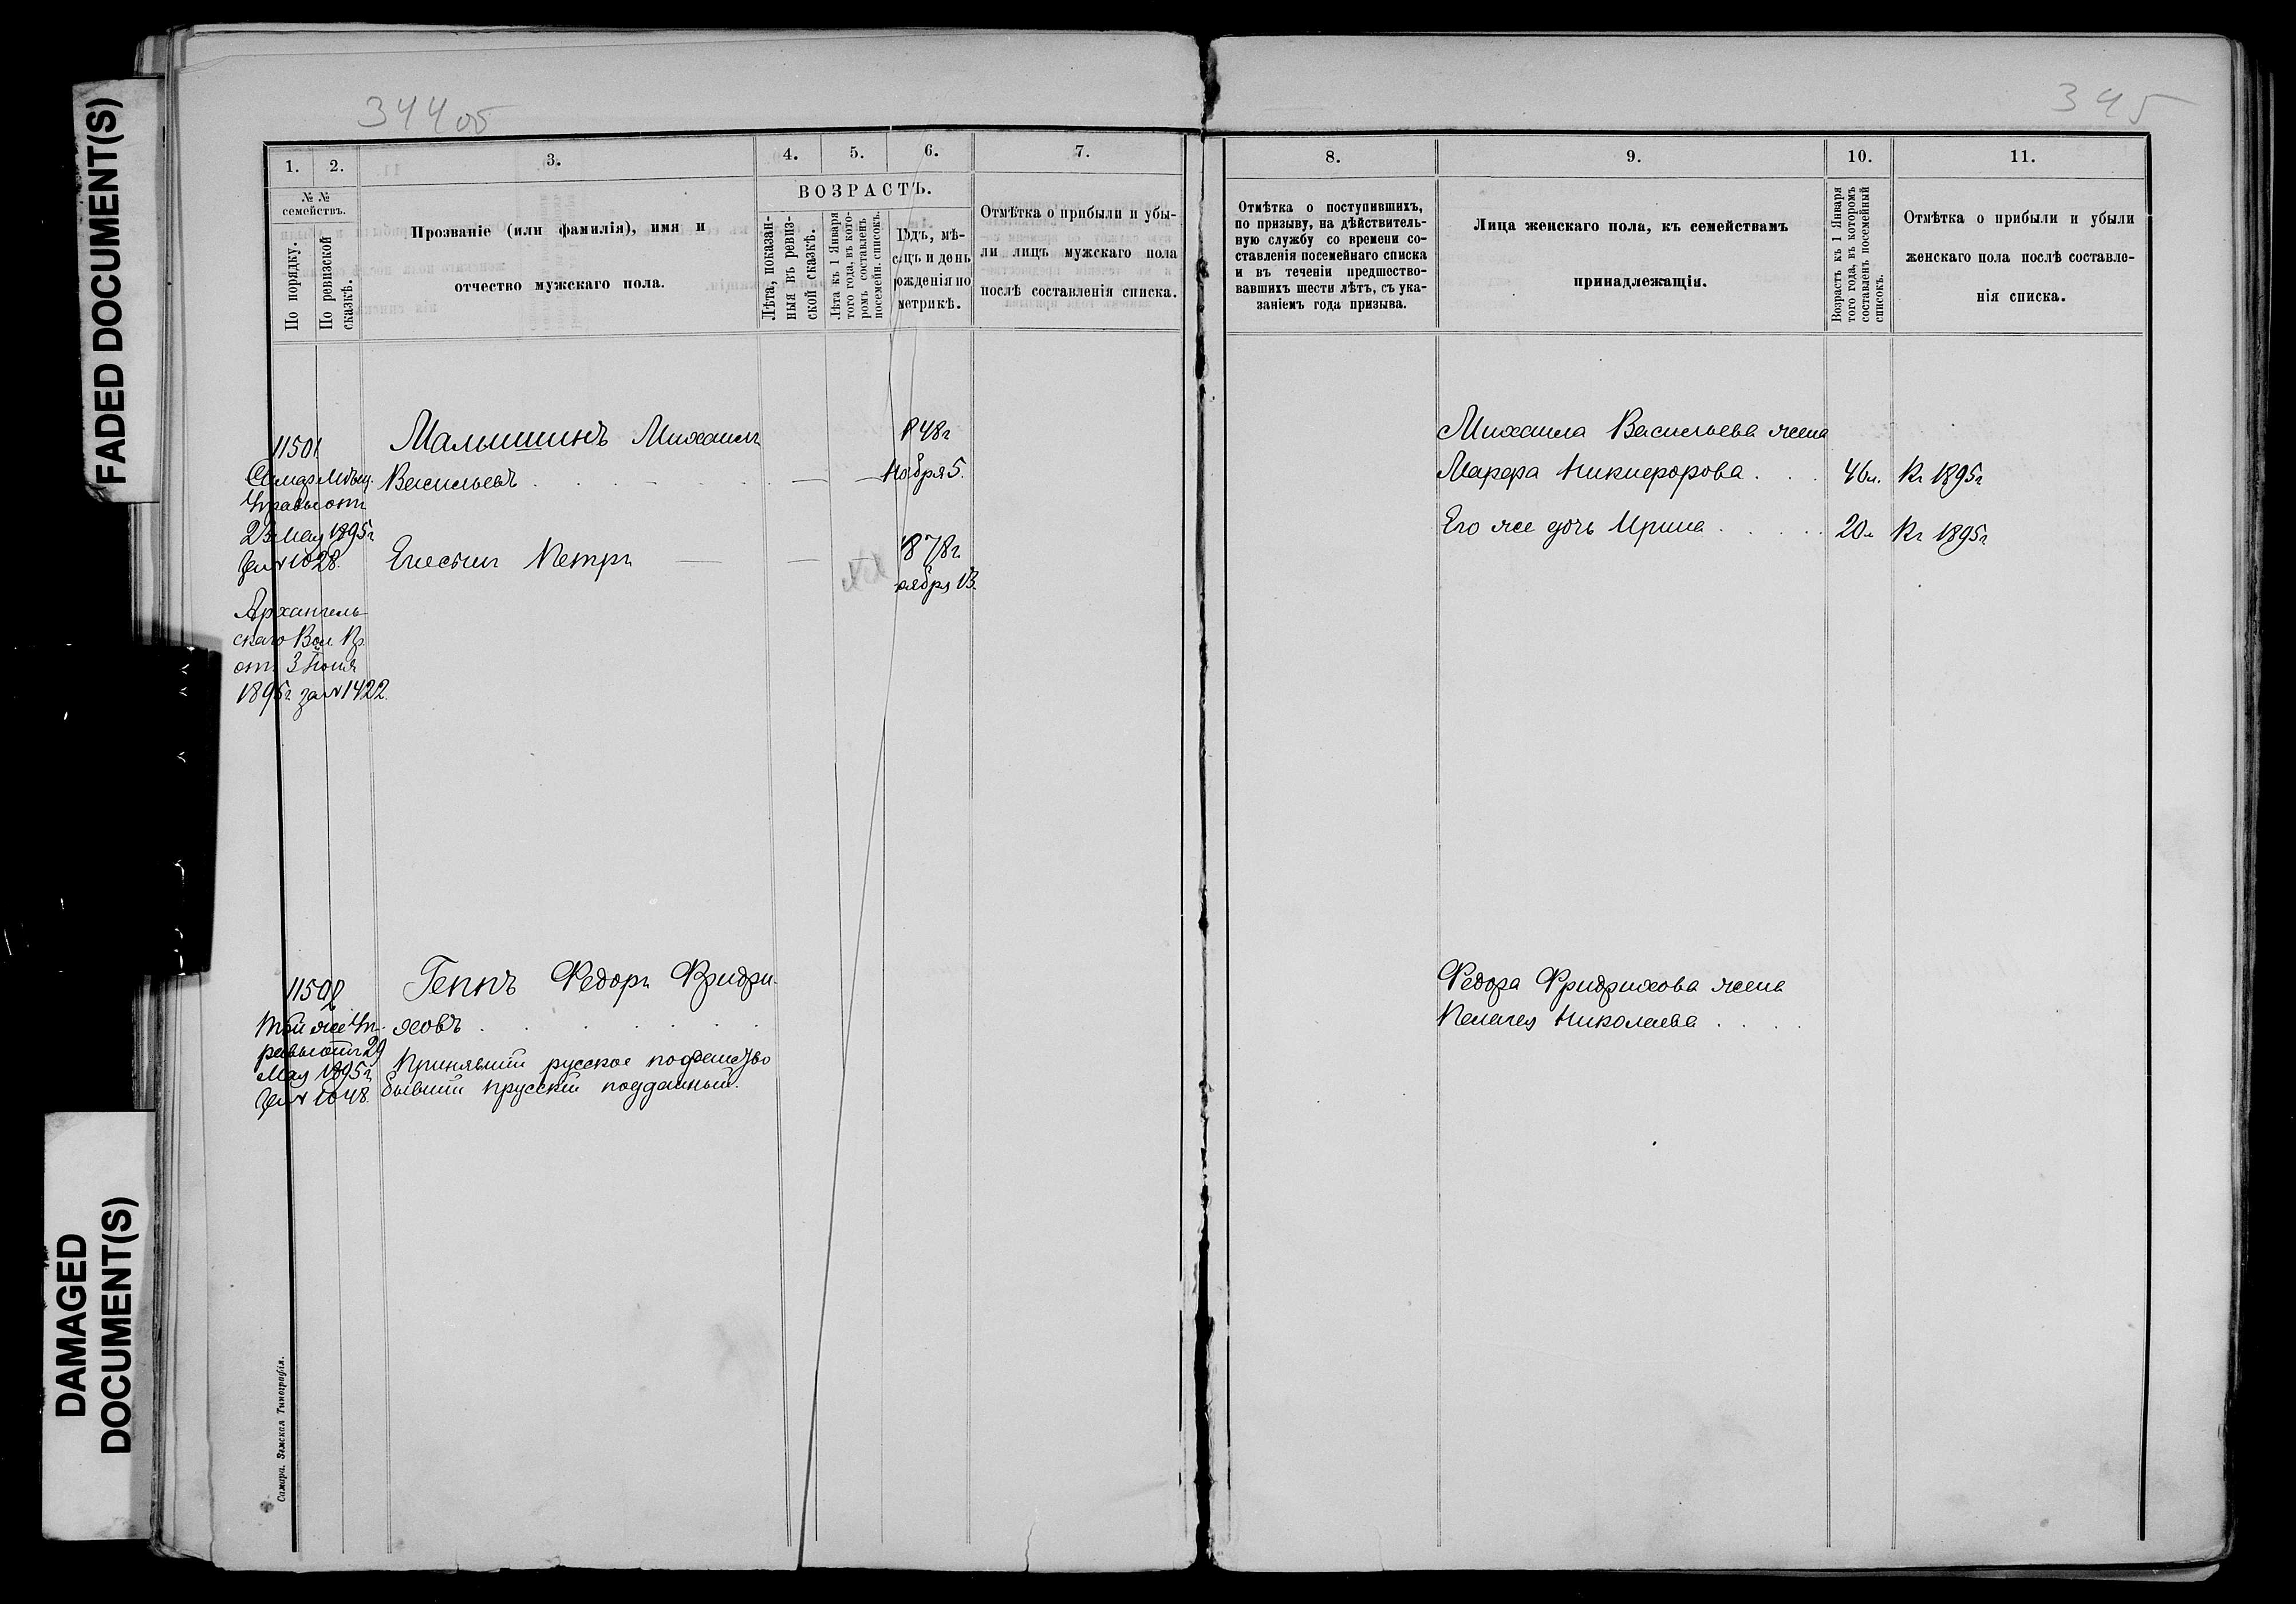 FADED DOCUMENT(S)
DAMAGED
DOCUMENT(S)
344об
1.
2.
3.
4.
5.
6.
7.
№ №
семействъ.
По порядку.
По ревизской
сказкѣ.
Прозваніе (или фамилія), имя и
отчество мужскаго пола.
ВОЗРАСТЪ.
Лѣта, показан-
ныя въ ревиз-
ской сказкѣ.
Лѣта къ 1 Января
того года, въ кото-
ромъ составленъ
посемейн. списокъ.
Годъ, мѣ-
сяцъ и день
рожденія по
метрикѣ.
Отмѣтка о прибыли и убы-
ли лицъ мужскаго пола
послѣ составленія списка.
11501
Самар Мѣщ.
Управы отъ
23 Мая 1895г
за № 1028.
Архангель
скаго Вол. Пр.
отъ 3 Іюня
1895г за № 1422.
Малышинъ Михаилъ
Васильевъ
1848г
Ноября 5.
Его сынъ Петръ
1878г.
оября 13.
11502
Той же Уп-
равы отъ 29
Мая 1895г
за № 1048.
Геппъ Федоръ Фридри-
ховъ
Принявшій русское подданство
бывшій прусскій подданный.
Самара. Земская Типографія.
345
8.
9.
10.
11.
Отмѣтка о поступившихъ,
по призыву, на дѣйствитель-
ную службу со времени со-
ставленія посемейнаго списка
и въ теченіи предшество-
вавшихъ шести лѣтъ, съ ука-
заніемъ года призыва.
Лица женскаго пола, къ семействамъ
принадлежащія.
Возрастъ къ 1 Января
того года, въ которомъ
составленъ посемейный
списокъ.
Отмѣтка о прибыли и убыли
женскаго пола послѣ составле-
нія списка.
Михаила Васильева жена
Марфа Никифорова . . . 46л. Къ 1895г
Его же дочь Ирина . . . . 20л Къ 1895г
Федора Фридрихова жена
Пелагея Николаева . . . .